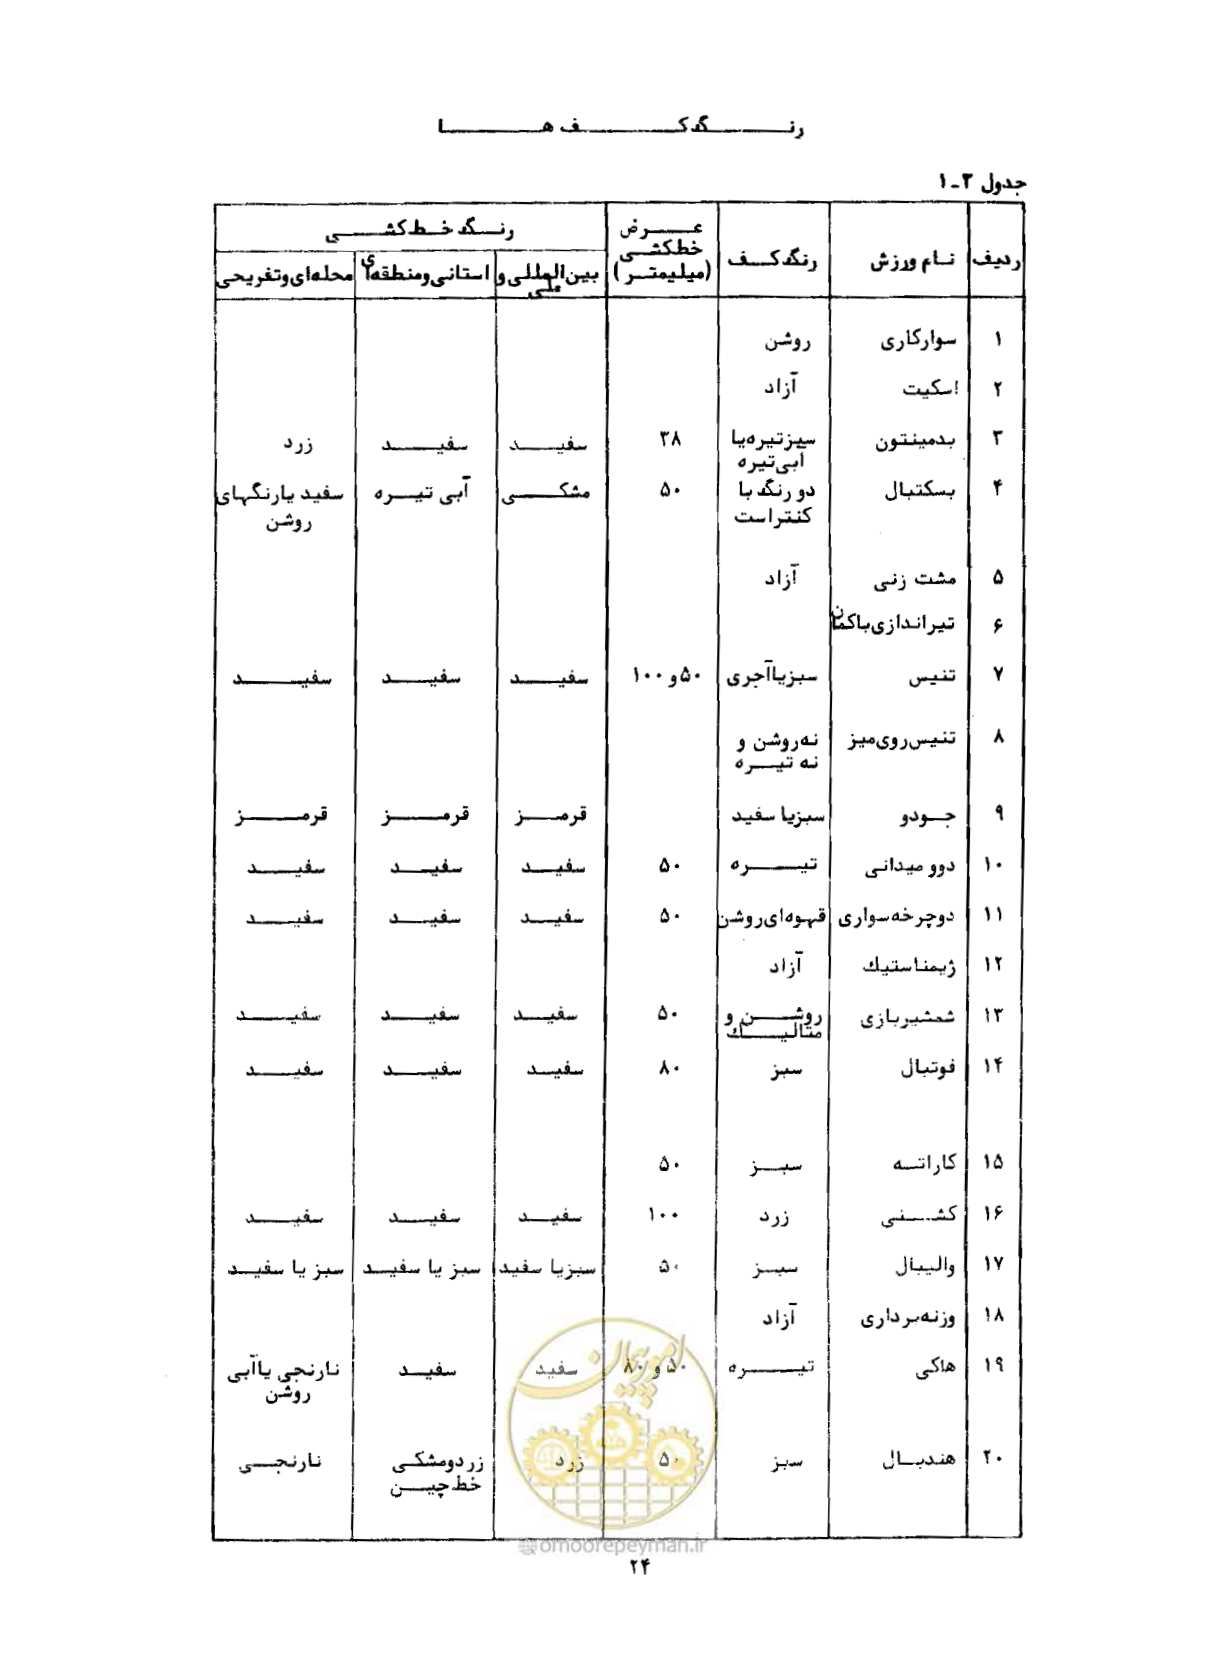 رنگ کف ها
جدول ۳-۱
ردیف نام ورزش رنگ کف عرض خطکشی (میلیمتر) رنگ خط کشی
بین‌المللی و ملی استانی و منطقه‌ای محله‌ای و تفریحی
۱ سوارکاری روشن
۲ اسکیت آزاد
۳ بدمینتون سبز تیره یا ۳۸ سفید سفید زرد
ابی تیره
۴ بسکتبال دو رنگ با ۵۰ مشکی آبی تیره سفید یا رنگهای
کنتراست روشن
۵ مشت زنی آزاد
۶ تیراندازی با کمان
۷ تنیس سبز یا آجری ۵۰ و ۱۰۰ سفید سفید سفید
۸ تنیس روی میز نه روشن و
نه تیره
۹ جودو سبز یا سفید قرمز قرمز قرمز
۱۰ دوو میدانی تیره ۵۰ سفید سفید سفید
۱۱ دوچرخه سواری قهوه‌ای روشن ۵۰ سفید سفید سفید
۱۲ ژیمناستیك آزاد
۱۳ شمشیربازی روشن و ۵۰ سفید سفید سفید
متالیك
۱۴ فوتبال سبز ۸۰ سفید سفید سفید
۱۵ کاراته سبز ۵۰
۱۶ کشتی زرد ۱۰۰ سفید سفید سفید
۱۷ والیبال سبز ۵۰ سبز یا سفید سبز یا سفید سبز یا سفید
۱۸ وزنه برداری آزاد
۱۹ هاکی تیره ۵۰ و ۸۰ سفید سفید نارنجی یا آبی
روشن
۲۰ هندبال سبز ۵۰ زرد زرد و مشکی نارنجی
خط چین
امور پیمان
@omoorepeyman.ir
۲۴